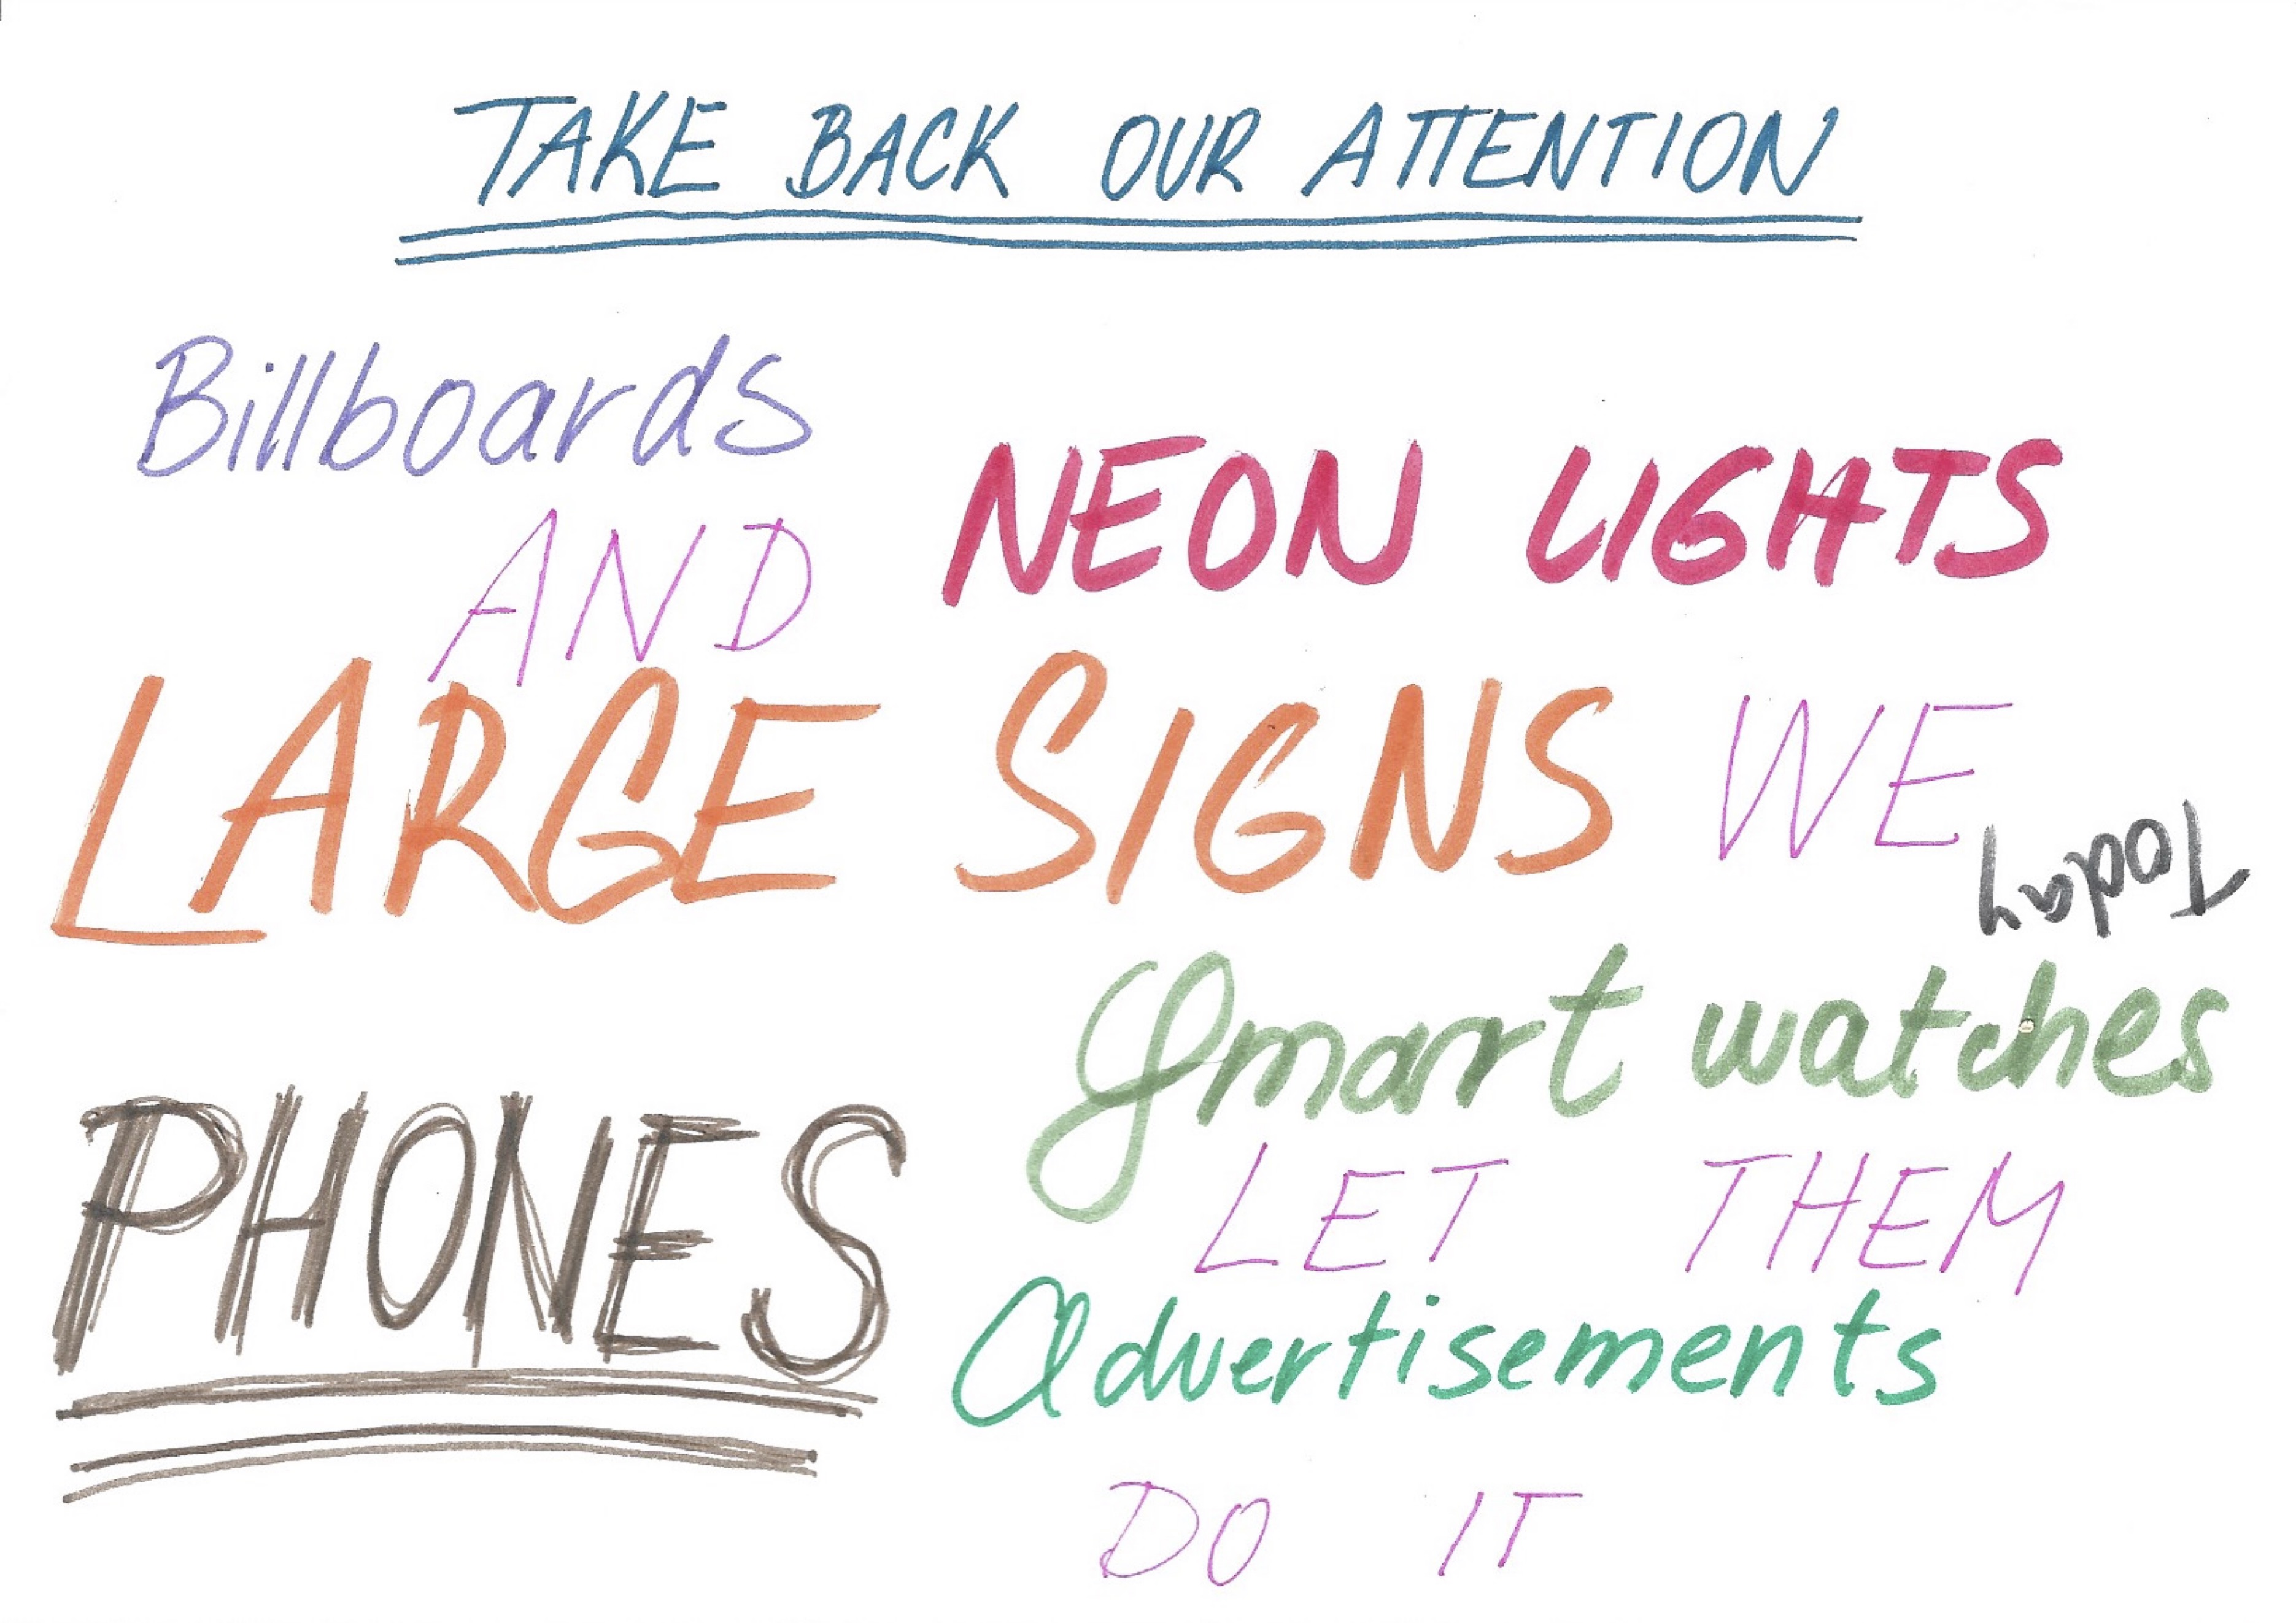 TAKE BACK OUR ATTENTION
Billboards
NEON LIGHTS
AND
LARGE SIGNS WE
Today
Smart watches
PHONES
LET THEM
Advertisements
DO IT